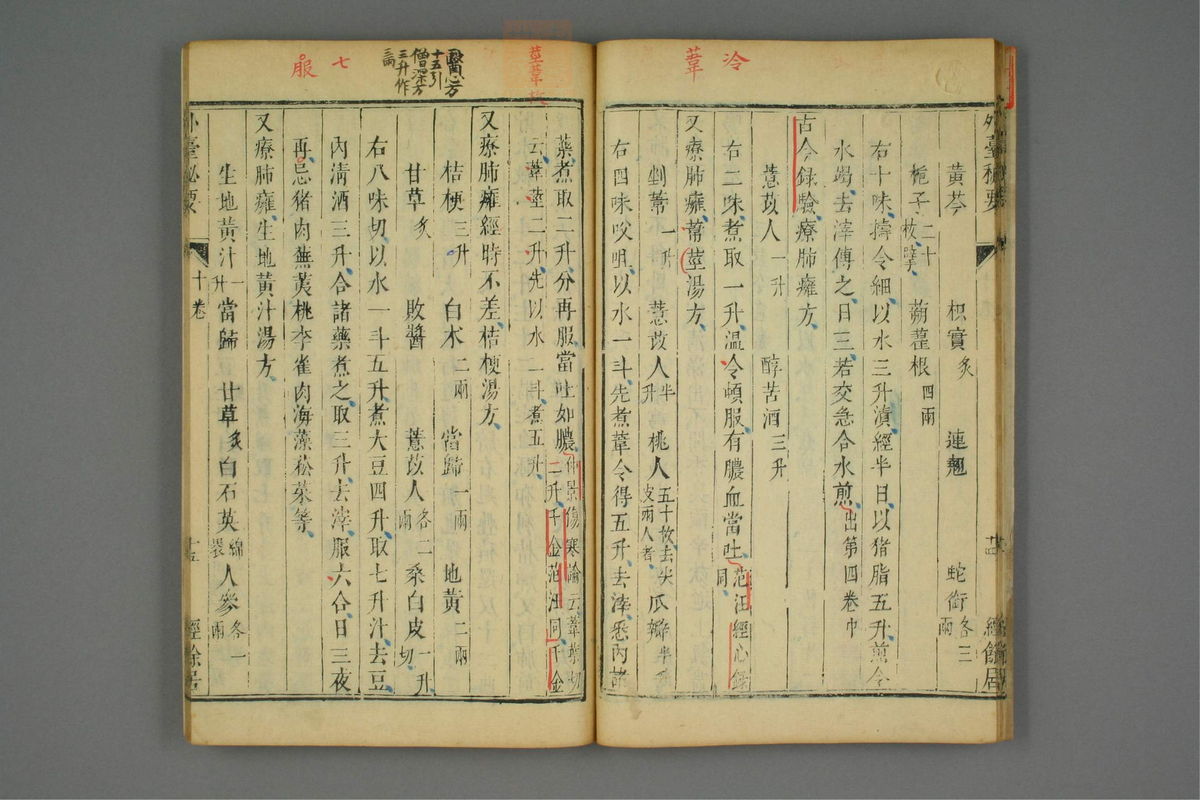 冷
葦
黃芩 枳實炙 連翹 蛇銜各三兩
梔子二十枚擘 蒴藋根四兩
右十味擣令細以水三升漬經半日以猪脂五升煎令
水竭去滓傅之日三若交急合水煎出第四卷中
古今録驗療肺癰方
薏苡人一升 醇苦酒三升
右二味煮取一升温令頓服有膿血當吐范汪經心録同
又療肺癰葦莖湯方
剉葦一升 薏苡人半升 桃人五十枚去尖皮兩人者 瓜瓣半升
右四味㕮咀以水一斗先煮葦令得五升去滓悉內諸
外臺秘要 經餘居
醫心方
十五引
僧深方
三升作
三兩
七
服
藥煮取二升分再服當吐如膿仲景傷寒論云葦葉切
二升千金范汪同千金
云葦莖二升先以水二斗煮五升
又療肺癰經時不差桔梗湯方
桔梗三升 白朮二兩 當歸一兩 地黃二兩
甘草炙 敗醬 薏苡人各二兩 桑白皮一升切
右八味切以水一斗五升煮大豆四升取七升汁去豆
內清酒三升合諸藥煮之取三升去滓服六合日三夜
再忌猪肉蕪荑桃李雀肉海藻菘菜等
又療肺癰生地黃汁湯方
生地黃汁一升 當歸 甘草炙 白石英綿裹 人參各一兩
外臺秘要 十卷 十五 經餘居